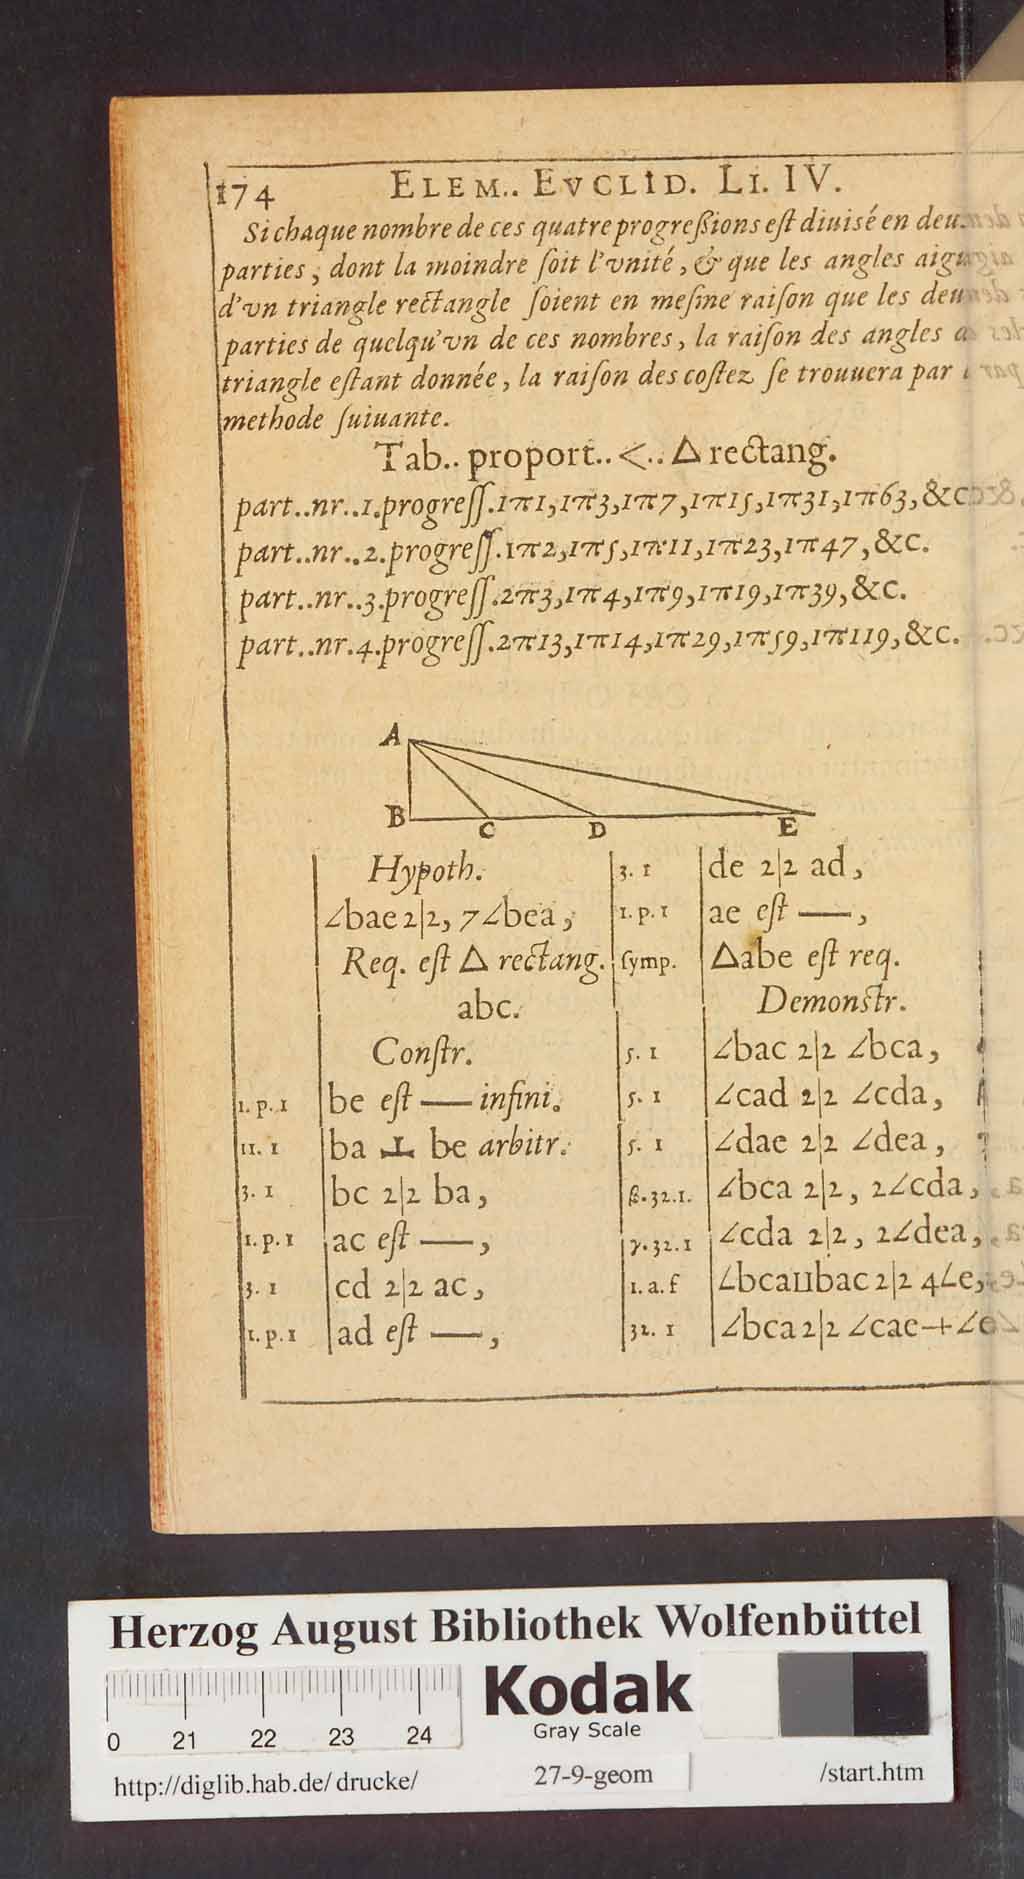 174 ELEM.. EVCLID. LI. IV.
Si chaque nombre de ces quatre progreßions eſt diuisé en deu
parties, dont la moindre ſoit l'vnité, & que les angles aigu
d'vn triangle rectangle ſoient en meſme raiſon que les deu
parties de quelqu'vn de ces nombres, la raiſon des angles
triangle eſtant donnée, la raiſon des coſtez ſe trouuera par
methode ſuiuante.
Tab.. proport.. <.. △ rectang.
part..nr..1.progreſſ.1π1,1π3,1π7,1π15,1π31,1π63,&c
part..nr..2.progreſſ.1π2,1π5,1π11,1π23,1π47,&c.
part..nr..3.progreſſ.2π3,1π4,1π9,1π19,1π39,&c.
part..nr.4.progreſſ.2π13,1π14,1π29,1π59,1π119,&c.
A
B C D E
Hypoth.
∠bae 2|2, 7∠bea,
Req. eſt △ rectang.
abc.
Conſtr.
1. p. 1 be eſt — infini.
11. 1 ba ⊥ be arbitr.
3. 1 bc 2|2 ba,
1. p. 1 ac eſt —,
3. 1 cd 2|2 ac,
1. p. 1 ad eſt —,
3. 1 de 2|2 ad,
1. p. 1 ae eſt —,
ſymp. △abe eſt req.
Demonſtr.
5. 1 ∠bac 2|2 ∠bca,
5. 1 ∠cad 2|2 ∠cda,
5. 1 ∠dae 2|2 ∠dea,
β.32.1. ∠bca 2|2, 2∠cda,
γ.32.1 ∠cda 2|2, 2∠dea,
1. a. f ∠bcaⅡbac 2|2 4∠e,
32. 1 ∠bca 2|2 ∠cae+∠e
Herzog August Bibliothek Wolfenbüttel
Kodak
Gray Scale
0 21 22 23 24
http://diglib.hab.de/drucke/ 27-9-geom /start.htm